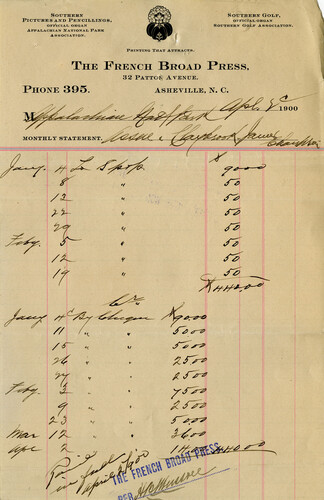 SOUTHERN
PICTURES AND PENCILLINGS,
OFFICIAL ORGAN
APPALACHIAN NATIONAL PARK
ASSOCIATION.
SOUTHERN GOLF,
OFFICIAL ORGAN
SOUTHERN GOLF ASSOCIATION.
PRINTING THAT ATTRACTS.
THE FRENCH BROAD PRESS,
32 PATTON AVENUE.
PHONE 395. ASHEVILLE, N. C.
Apl. 1900
M Appalachian Nat'l Park
MONTHLY STATEMENT.
Jany 4 To
8 " 50
12 " 50
22 " 50
29 " 50
Feby 5 " 50
12 " 50
19 " 50
Cr.
Jany 4 By Cheque 9000
11 " " 5000
15 " " 5000
26 " " 2500
27 " " 2500
Feby 3 " " 7500
9 " " 2500
23 " " 5000
Mar 12 " " 3600
Apr 2 "
Paid
in full
April 2 1900
THE FRENCH BROAD PRESS
PER